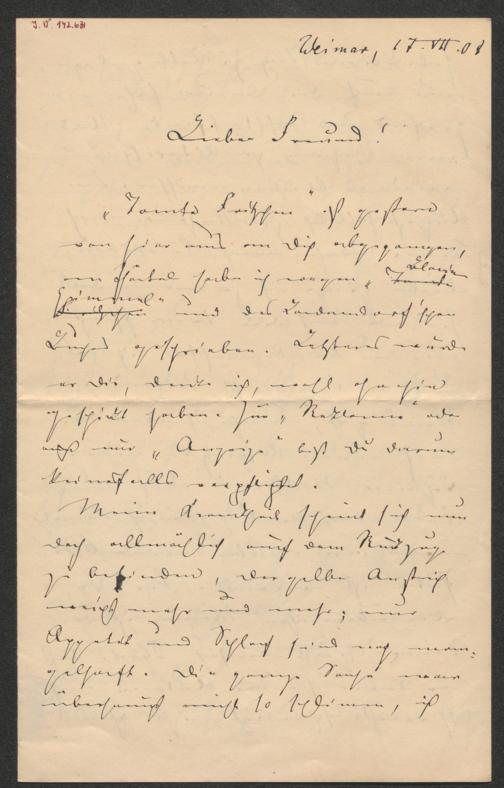 J. N. 142.681
Weimar, 17. VII. 08
Lieber Freund!
„Tante Fritzchen" ist gestern
von hier aus an Dich abgegangen,
an habe ich wegen „Tante Blauen
Fritzchen Himmel" und des
Buches geschrieben. Letzteres würde
er Dir, denke ich, wohl ohnehin
geschickt haben. Zur „Reklame" oder
auch nur „Anzeige" bist Du darum
keinesfalls verpflichtet.
Meine Krankheit scheint sich nun
doch allmählich auf dem Rückzuge
zu befinden, der gelbe Anstrich
weicht mehr und mehr; nur
Appetit und Schlaf sind noch man-
gelhaft. Die ganze Sache war
überhaupt nicht so schlimm, ich